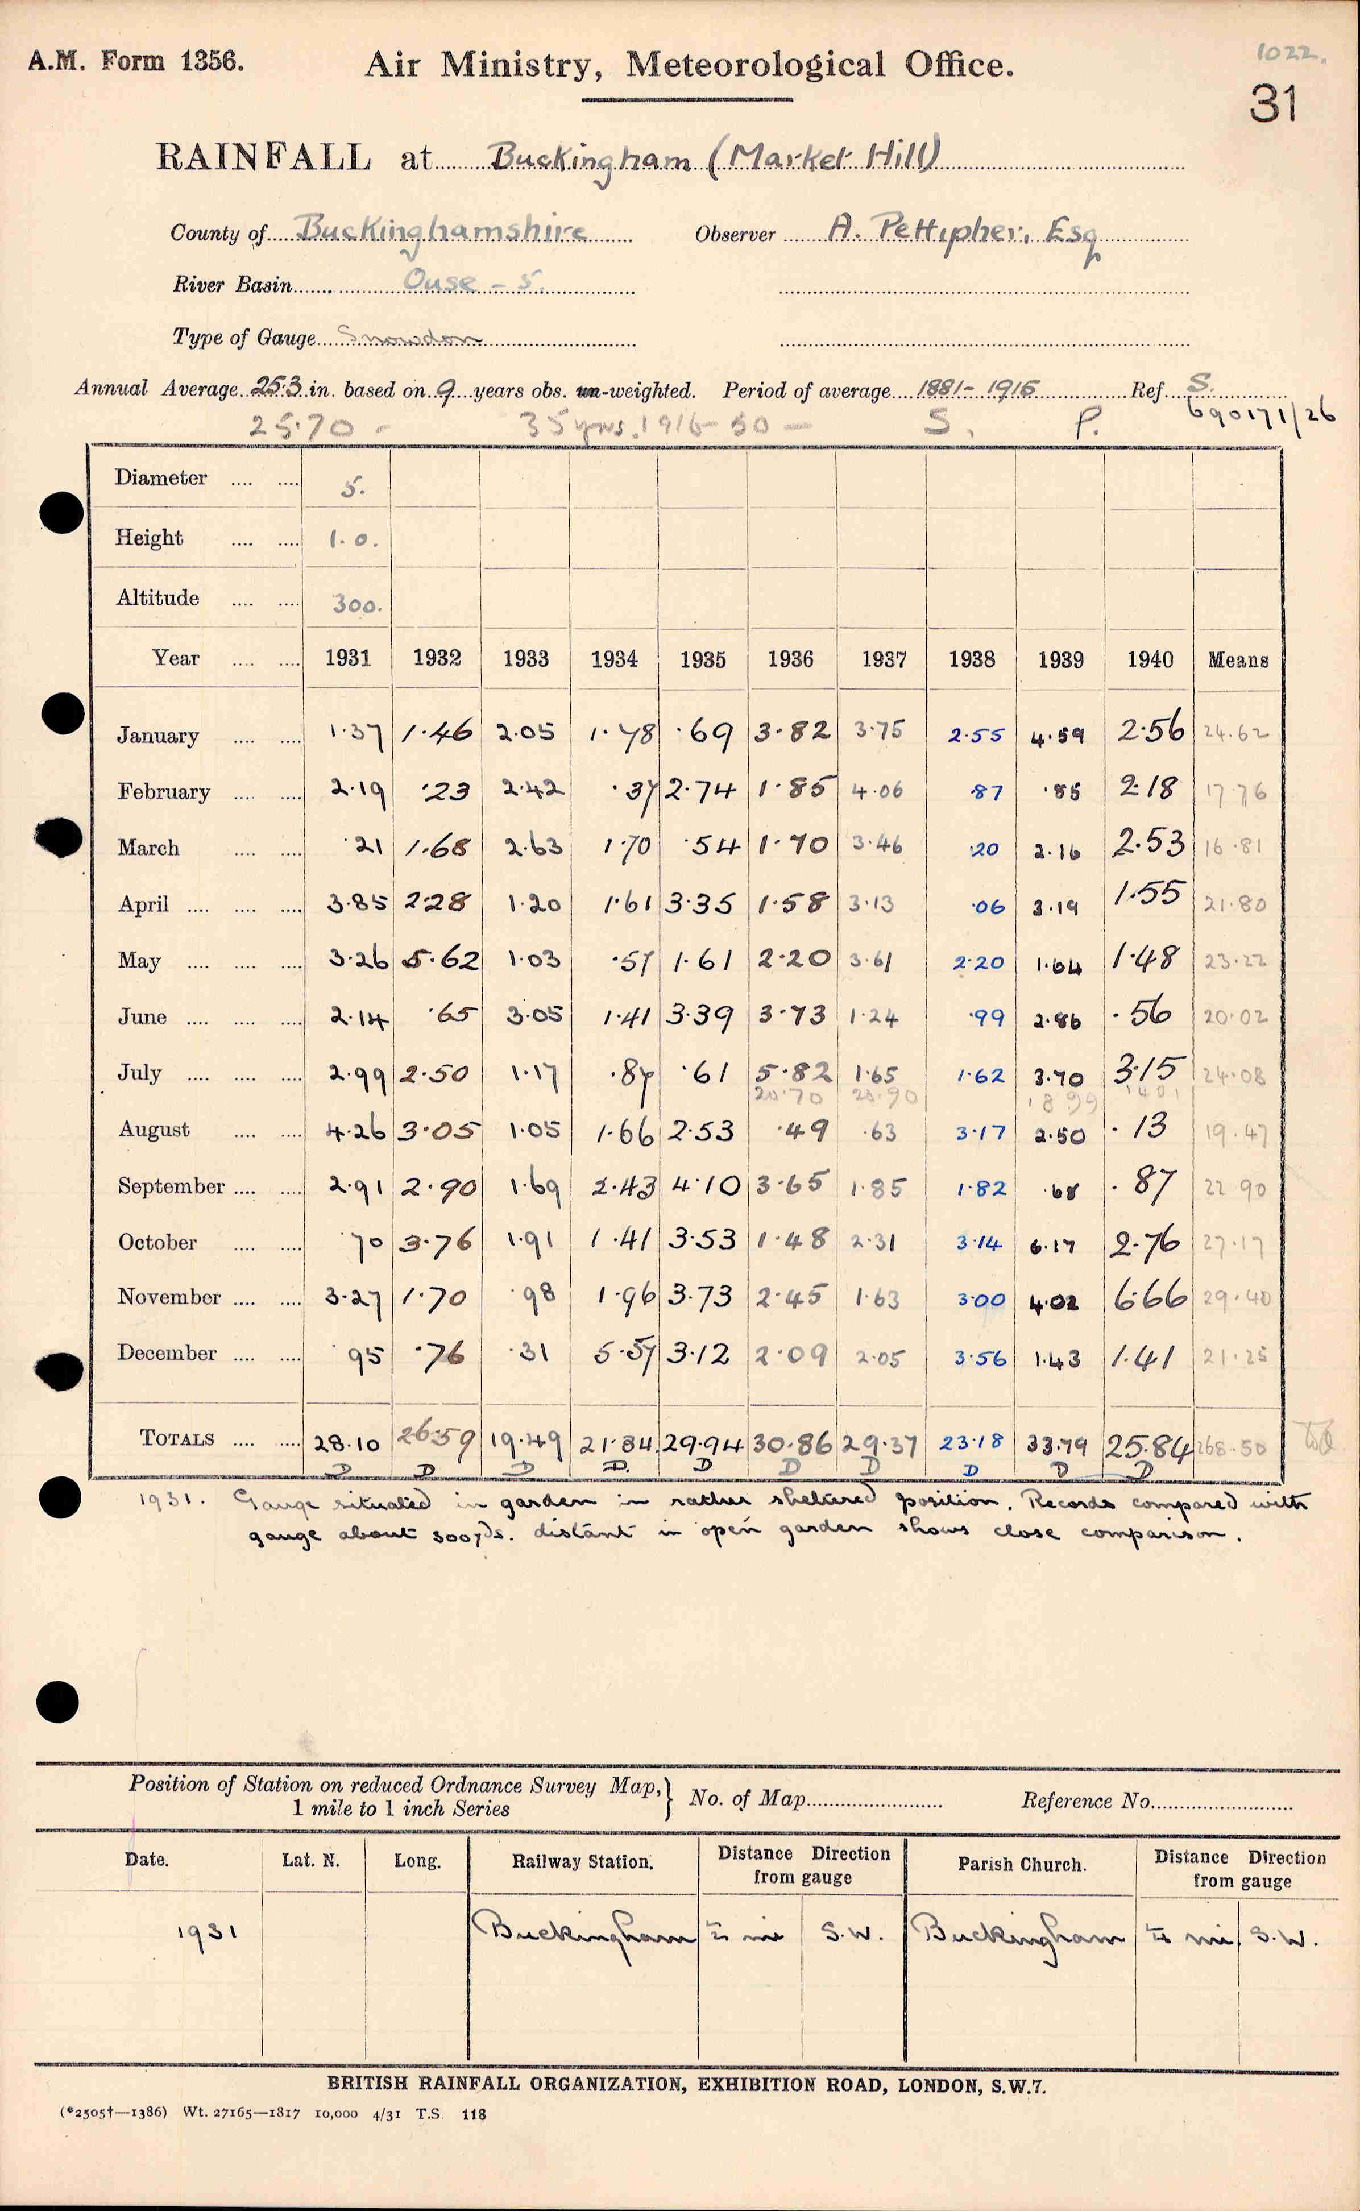 A.M. Form 1356.
Air Ministry, Meteorological Office.
1022.
31
RAINFALL at Buckingham (Market Hill)
County of Buckinghamshire Observer A. Pettipher, Esq
River Basin Ouse - 5.
Type of Gauge Snowdon
Annual Average 25.3 in. based on 9 years obs. un-weighted. Period of average 1881-1915 Ref. S.
25.70 - 35 yrs. 1916-50 - S. P. 690171/26
Diameter .... .... 5.
Height .... .... 1.0.
Altitude .... .... 300.
Year .... .... 1931 1932 1933 1934 1935 1936 1937 1938 1939 1940 Means
January .... .... 1.37 1.46 2.05 1.78 .69 3.82 3.75 2.55 4.59 2.56 24.62
February .... .... 2.19 .23 2.42 .37 2.74 1.85 4.06 .87 .85 2.18 17 76
March .... .... .21 1.68 2.63 1.70 .54 1.70 3.46 .20 2.16 2.53 16.81
April .... .... .... 3.85 2.28 1.20 1.61 3.35 1.58 3.13 .06 3.19 1.55 21.80
May .... .... .... 3.26 5.62 1.03 .57 1.61 2.20 3.61 2.20 1.64 1.48 23.22
June .... .... .... 2.14 .65 3.05 1.41 3.39 3.73 1.24 .99 2.86 .56 20.02
July .... .... .... 2.99 2.50 1.17 .87 .61 5.82 1.65 1.62 3.70 3.15 24.08
20.70 20.90 18 99 1401
August .... .... 4.26 3.05 1.05 1.66 2.53 .49 .63 3.17 2.50 .13 19.47
September .... .... 2.91 2.90 1.69 2.43 4.10 3.65 1.85 1.82 .68 .87 22 90
October .... .... .70 3.76 1.91 1.41 3.53 1.48 2.31 3.14 6.17 2.76 27.17
November .... .... 3.27 1.70 .98 1.96 3.73 2.45 1.63 3.00 4.02 6.66 29.40
December .... .... .95 .76 .31 5.57 3.12 2.09 2.05 3.56 1.43 1.41 21.25
TOTALS .... .... 28.10 26.59 19.49 21.34 29.94 30.86 29.37 23.18 33.79 25.84 268.50
D D D D. D D D D D D
1931. Gauge situated in garden in rather sheltered position. Records compared with
gauge about 300yds. distant in open garden shows close comparison.
Position of Station on reduced Ordnance Survey Map, } No. of Map.......... Reference No..........
1 mile to 1 inch Series
Date. Lat. N. Long. Railway Station. Distance Direction from gauge Parish Church. Distance Direction from gauge
1931 Buckingham ½ mi S.W. Buckingham ¼ mi. S.W.
BRITISH RAINFALL ORGANIZATION, EXHIBITION ROAD, LONDON, S.W.7.
(*2505†—1386) Wt. 27165—1817 10,000 4/31 T.S. 118